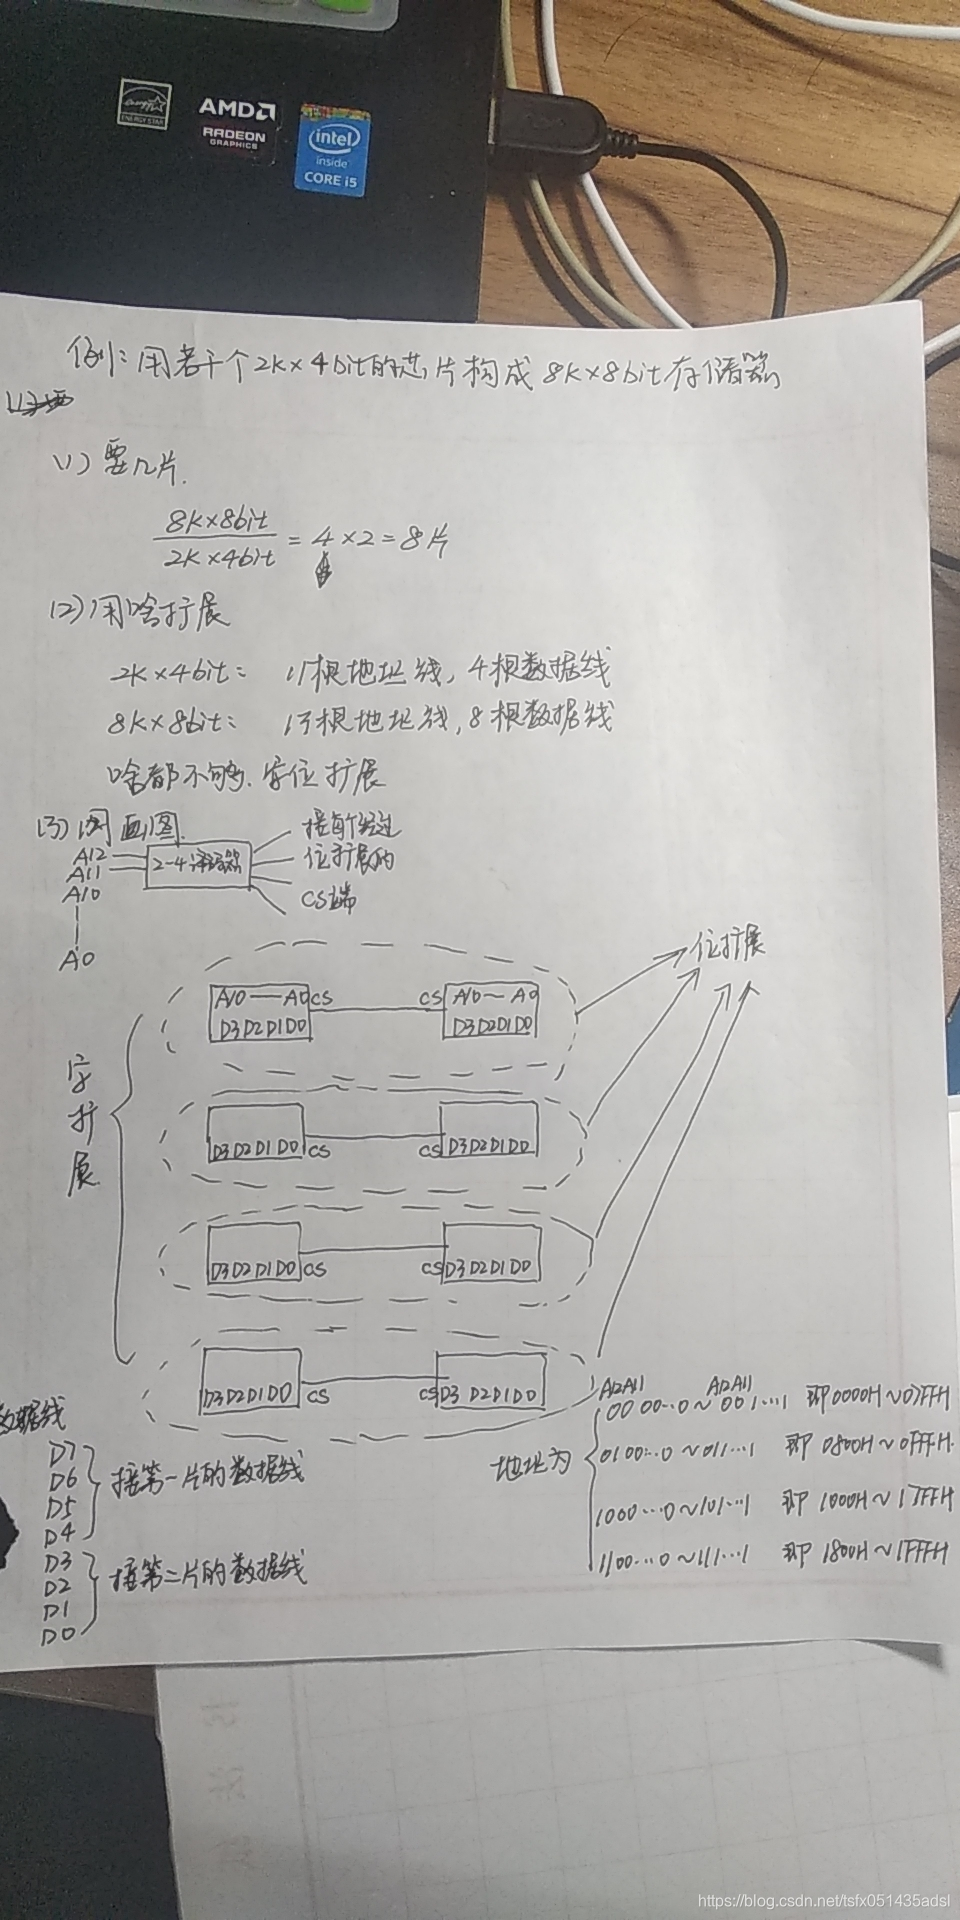 energy
ENERGY STAR
AMD
RADEON
GRAPHICS
intel
inside
CORE i5
例: 用若干个2K×4bit的芯片构成8K×8bit存储器
(1) 要几片.
8K×8bit
2K×4bit
= 4×2=8片
(2)用啥扩展
2K×4bit: 11根地址线, 4根数据线
8K×8bit: 13根地址线, 8根数据线
啥都不够. 字位扩展
(3) 画图.
A12
A11
A10
A0
2-4译码器
接前经过
位扩展的
CS端
位扩展
字扩展
A10—A0 CS
D3D2D1D0
CS A10~A0
D3D2D1D0
D3D2D1D0 CS
CS D3D2D1D0
D3D2D1D0 CS
CS D3D2D1D0
D3D2D1D0 CS
CS D3 D2D1D0
数据线
D7
D6
D5
D4
接第一片的数据线
D3
D2
D1
D0
接第二片的数据线
地址为
A12A11 A12A11
00 00…0~001…1 即0000H~07FFH
0100…0~011…1 即 0800H~0FFFH.
1000…0~101…1 即 1000H~17FFH
1100…0~111…1 即 1800H~1FFFH
https://blog.csdn.net/tsfx051435adsl